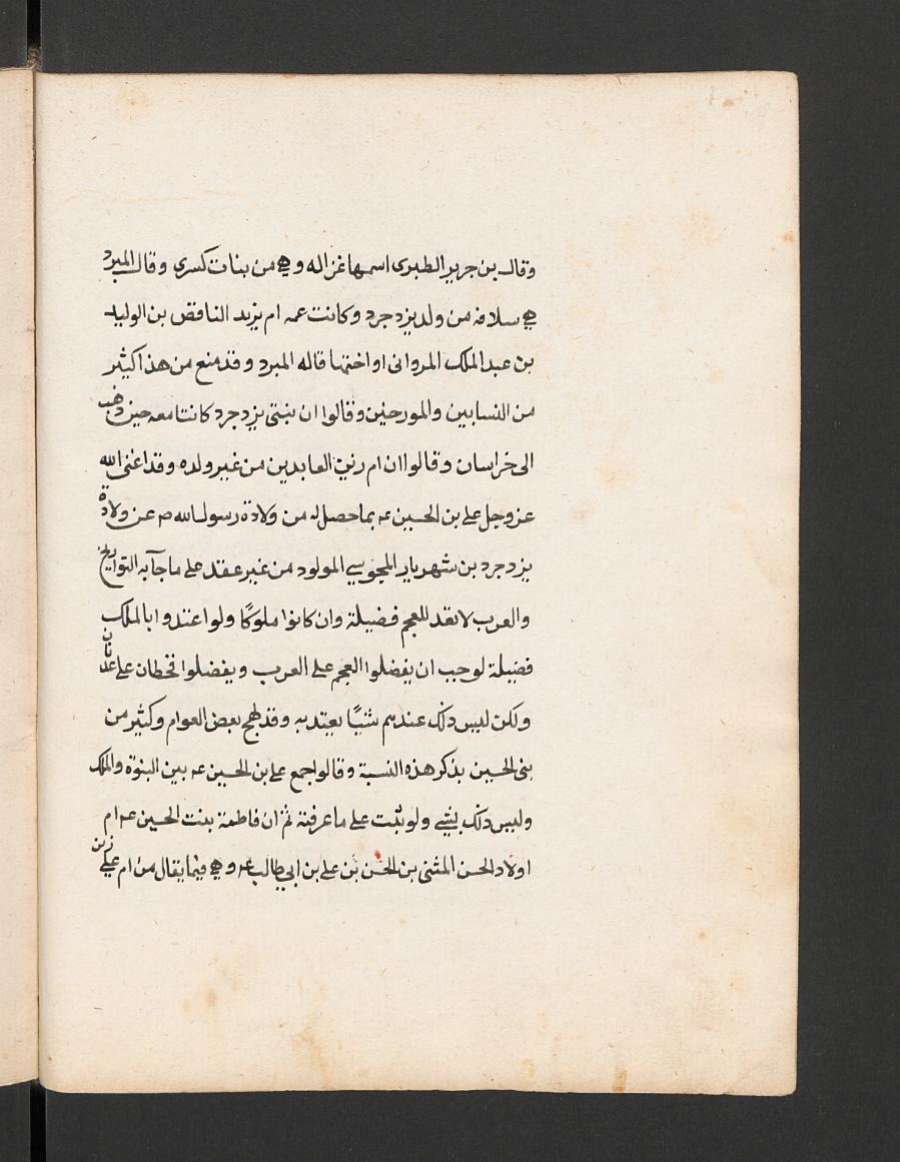 وقال بن جرير الطبرى اسمها غزاله وهي من بنات كسرى وقال المبرد
هي سلافه من ولد يزدجرد وكانت عمه ام يزيد الناقص بن الوليد
بن عبد الملك المروانى او اختها قاله المبرد وقد منع من هذا كثير
من النسابين والمورخين وقالوا ان بنتى يزدجرد كانتا معه حين ذهب
الى خراسان وقالوا ان ام زين العابدين من غير ولده وقد اغنى الله
عز وجل على بن الحسين عه بما حصل له من ولادة رسول الله ص عن ولادة
يزدجرد بن شهريار المجوسي المولود من غير عقد على ما جآ به التواريخ
والعرب لا تعد للعجم فضيلة وان كانوا ملوكًا ولو اعتدوا بالملك
فضيلة لوجب ان يفضلوا العجم على العرب ويفضلوا قحطان على عدنان
ولكن ليس ذلك عندهم شيًا يعتد به وقد لهج بعض العوام وكثير من
بنى الحسين بذكر هذه النسبة وقالوا جمع على بن الحسين عه بين النبوة والملك
وليس ذلك بشيء ولو ثبت على ما عرفته ثم ان فاطمة بنت الحسين عه ام
اولاد الحسن المثنى بن الحسن بن على بن ابي طالب عه وهي فيما يقال من ام على زين